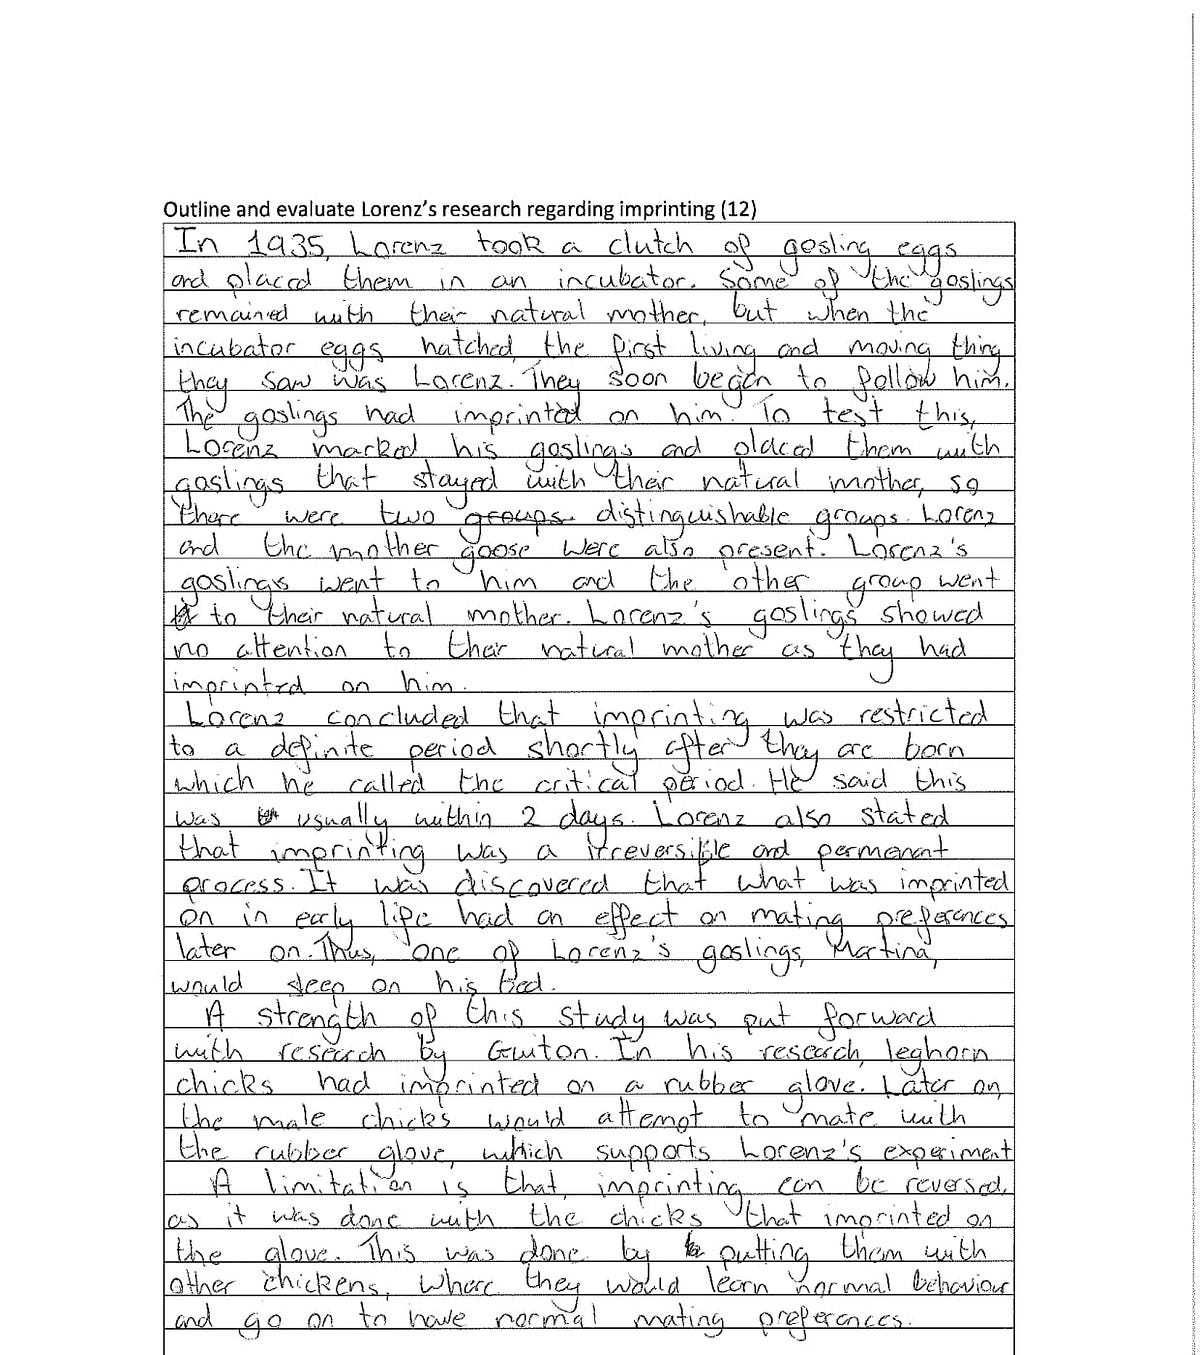 Outline and evaluate Lorenz's research regarding imprinting (12)
In 1935, Lorenz took a clutch of gosling eggs
and placed them in an incubator. Some of the goslings
remained with their natural mother, but when the
incubator eggs hatched, the first living and moving thing
they saw was Lorenz. They soon began to follow him.
The goslings had imprinted on him. To test this,
Lorenz marked his goslings and placed them with
goslings that stayed with their natural mother, so
there were two groups. distinguishable groups. Lorenz
and the mother goose were also present. Lorenz's
goslings went to him and the other group went
to their natural mother. Lorenz's goslings showed
no attention to their natural mother as they had
imprinted on him.
Lorenz concluded that imprinting was restricted
to a definite period shortly after they are born
which he called the critical period. He said this
was usually within 2 days. Lorenz also stated
that imprinting was a irreversible and permenant
process. It was discovered that what was imprinted
on in early life had an effect on mating preferences
later on. Thus, one of Lorenz's goslings, Martina,
would sleep on his bed.
A strength of this study was put forward
with research by Guiton. In his research, leghorn
chicks had imprinted on a rubber glove. Later on,
the male chicks would attempt to mate with
the rubber glove, which supports Lorenz's experiment
A limitation is that, imprinting can be reversed,
as it was done with the chicks that imprinted on
the glove. This was done by putting them with
other chickens, where they would learn normal behaviour
and go on to have normal mating preferences.